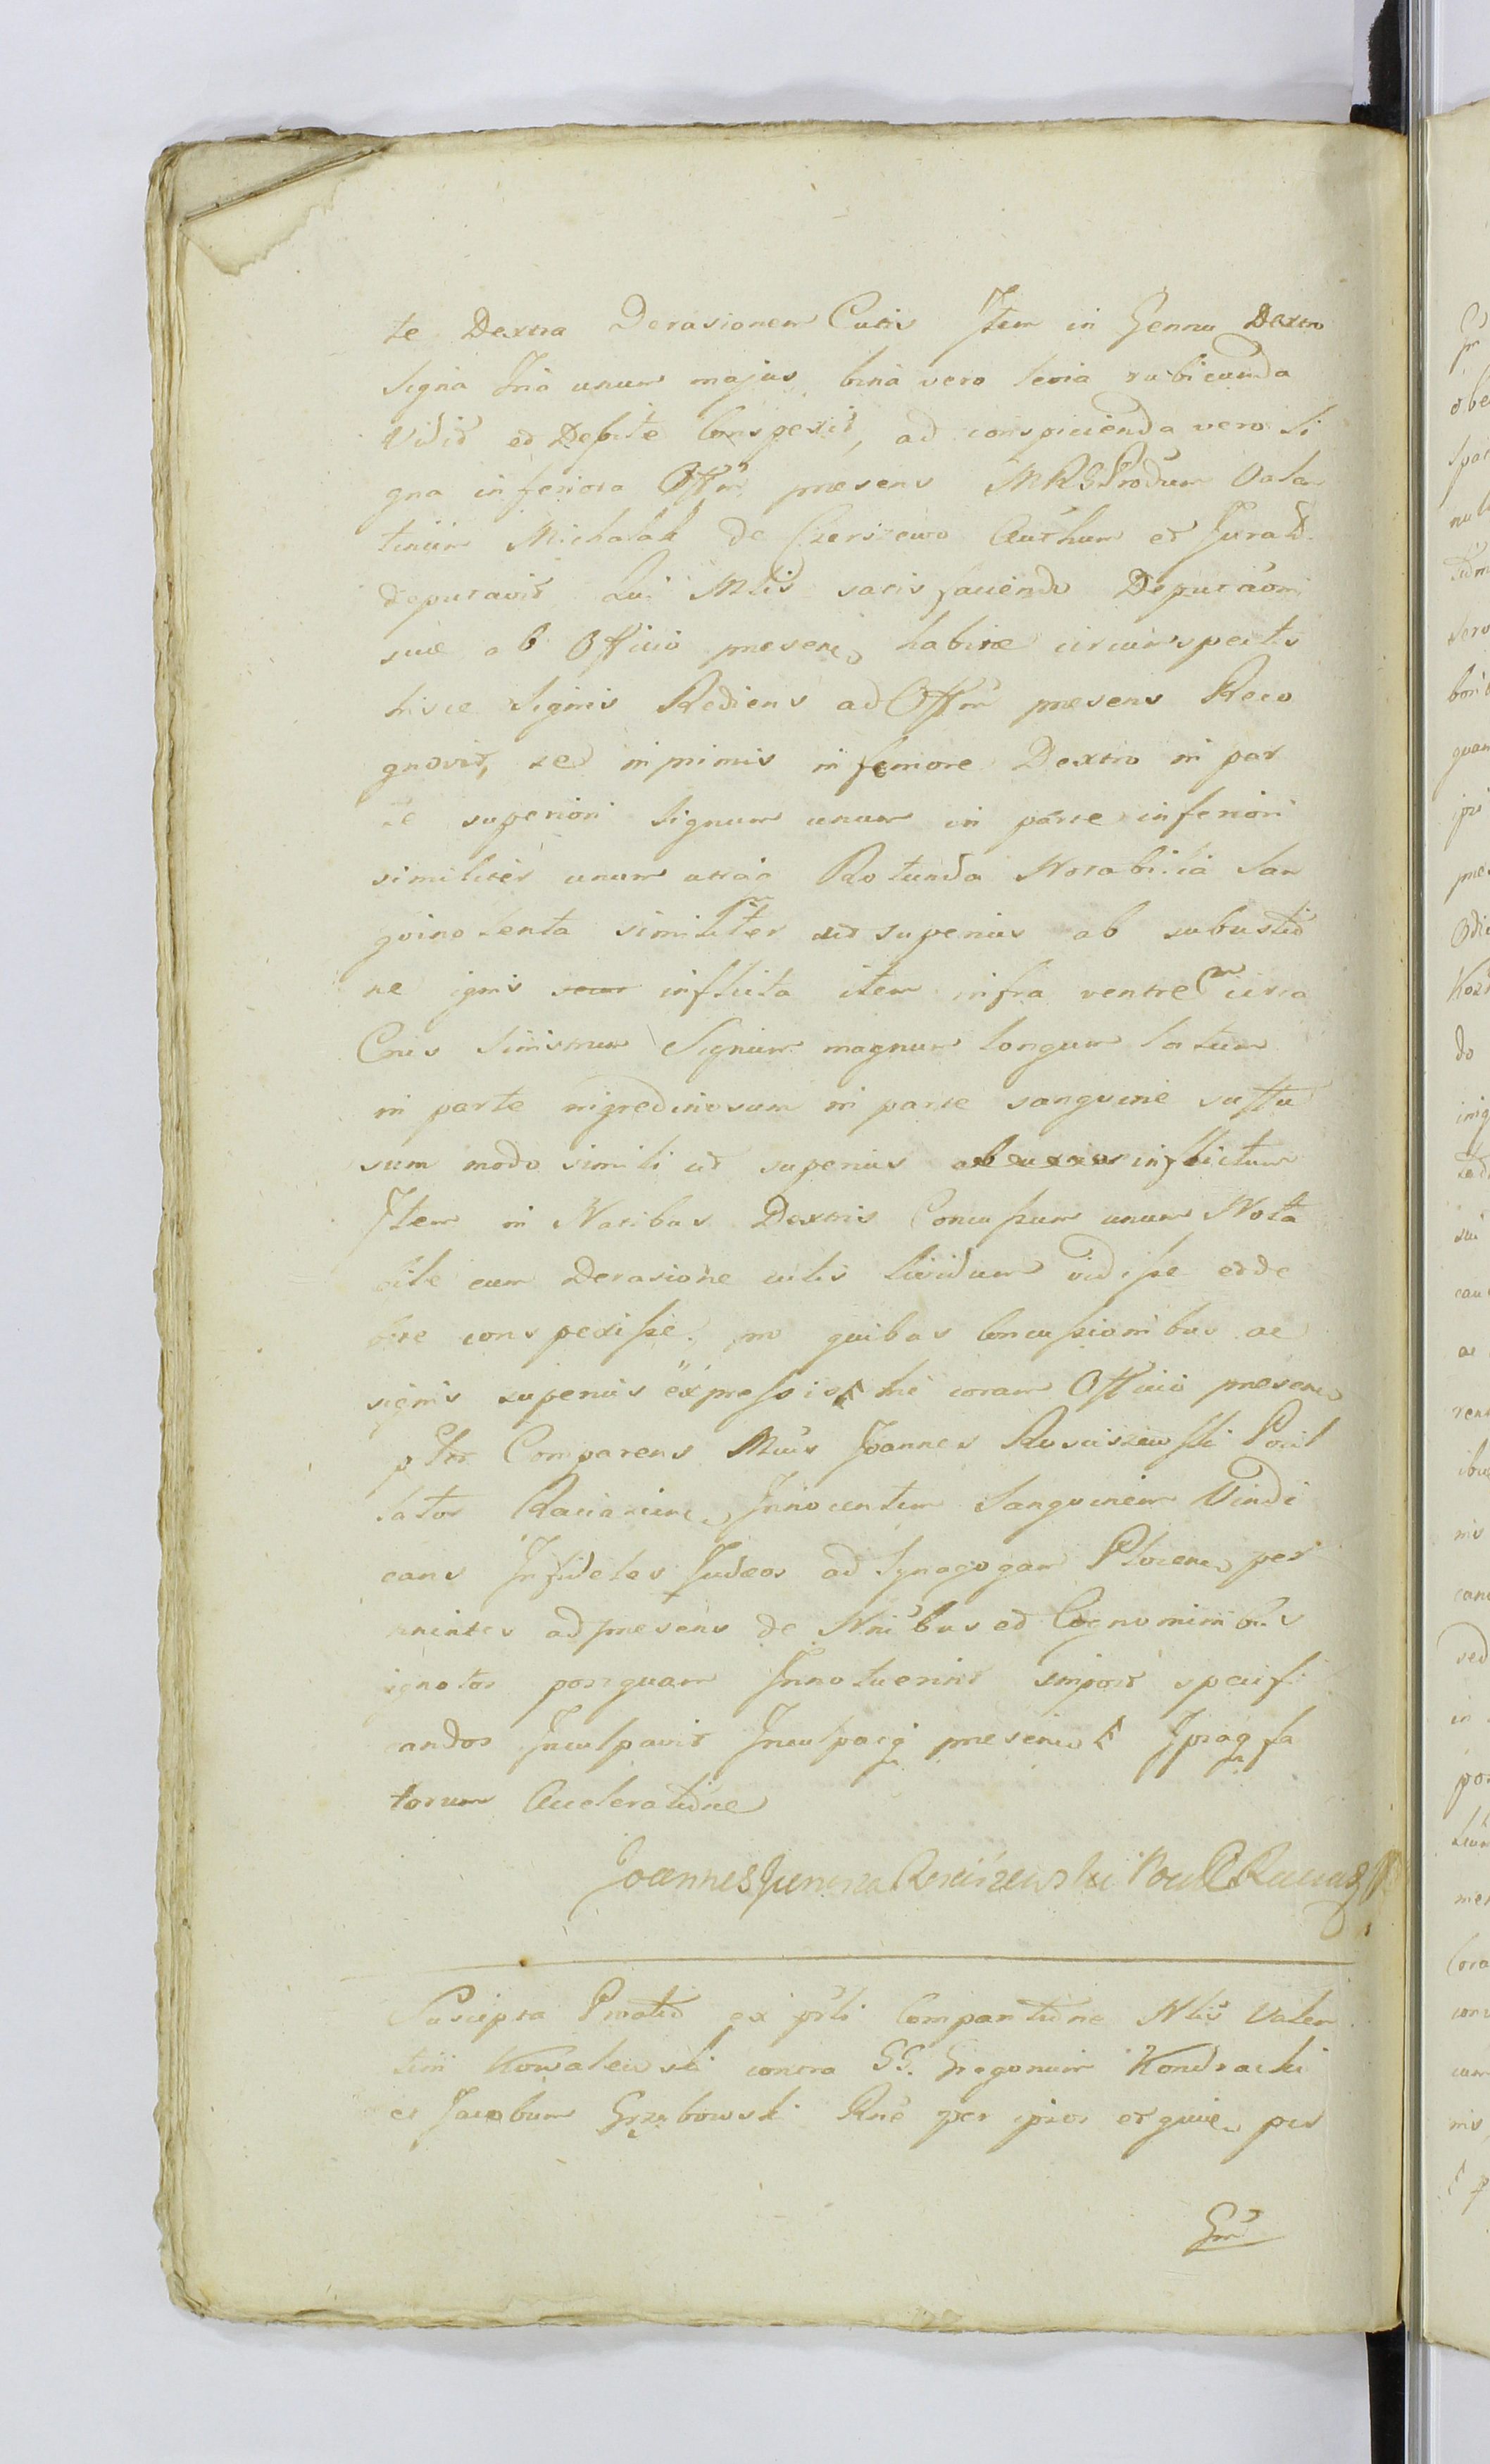 te Dextra Derasionem Cutis Item in Gennu Dextro
Signa Tria unum majus, bina vero levia rubicunda
Vidit et Debite Conspexit, ad conspicienda vero Si
gna inferiora Offm presens MRGProdum Valen
tinum Michalak de Czerszewo Authum et Jurat
deputavit Qui Mtis satisfaciendo Deputaoni
suæ ab Officio presenti habitæ circumspectis
hisce Signis Rediens ad Offm presens Reco
gnovit, se in primis in femore Dextro in par
te superiori Signum unum in parte inferiori
similiter unum utraq Rotunda Notabilia San
gvinolenta similiter ut superius ab subustio
ne ignis inflicta item infra ventrem circa
Crus Sinistrum Signum magnum longum latum
in parte nigredinosum in parte sangvine suffu
sum modo simili ut superius inflictum
Item in Natibus Dextris Concussum unum Nota
bile cum Derasione cutis lividum vidisse et de
bite conspexisse. pro quibus Concussionibus ac
signis superius expressis hic coram Officio presenti
pltr Comparens Joannes Rosciszewski Pocil
lator Raciazien Innocentem Sangvinem Vindi
cans Infideles Judæos ad Synagogam Plocen per
tinentes ad presens de Nnibus et Cognominibus
ignotos postquam Innotuerint specifi
candos Inculpavit Inculpatq presenti Ipsaq fa
ctorum Acceleratione
Joannes Junosza Rosciszewski
Suscepta Protatio ex prli Comparitione Nlis Valen
tini Kowalewski contra GG. Gregorium Kondracki
et Jacobum Grzybowski Rne per ipsos et
Gm